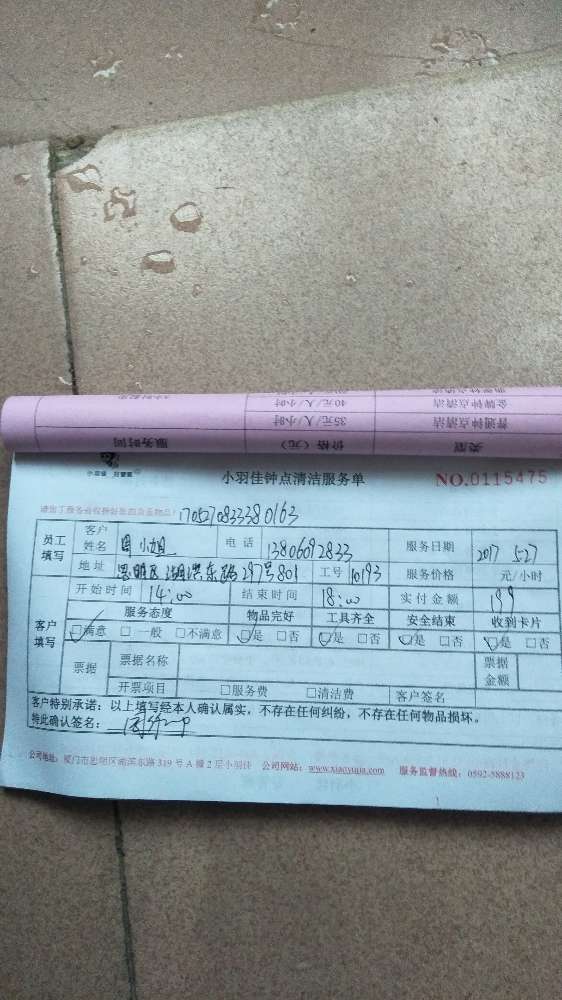 金牌钟点清洁 40元/人/小时
普通钟点清洁 35元/人/小时
类型 价格（元） 服务时间
小羽佳 好管家
小羽佳钟点清洁服务单 NO.0115475
1705270833380163
员工填写 客户姓名 周小姐 电话 13806092833 服务日期 2017 5.27
地址 思明区湖滨东路297号801 工号 10193 服务价格 元/小时
客户填写 开始时间 14:00 结束时间 18:00 实付金额 199
服务态度 物品完好 工具齐全 安全结束 收到卡片
☑满意 □一般 □不满意 ☑是 □否 ☑是 □否 ☑是 □否 ☑是 □否
票据 票据名称 票据金额
开票项目 □服务费 □清洁费 客户签名
客户特别承诺：以上填写经本人确认属实，不存在任何纠纷，不存在任何物品损坏。
特此确认签名：
公司地址：厦门市思明区湖滨东路319号A幢2层小羽佳 公司网站：www.xiaoyujia.com 服务监督热线：0592-5888123